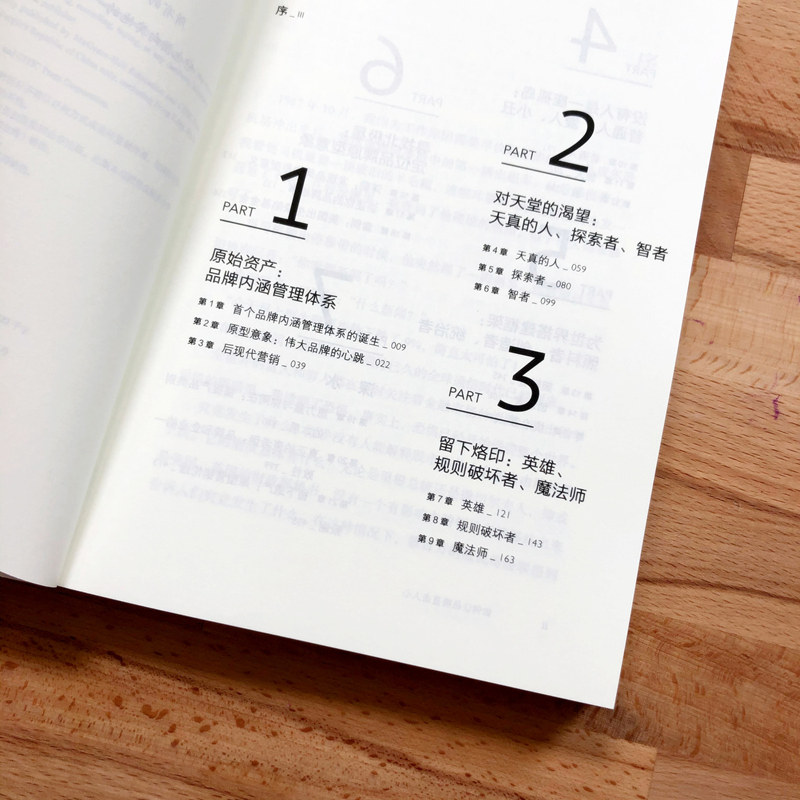 序_III
PART 1
原始资产：
品牌内涵管理体系
第1章 首个品牌内涵管理体系的诞生_009
第2章 原型意象：伟大品牌的心跳_022
第3章 后现代营销_039
PART 2
对天堂的渴望：
天真的人、探索者、智者
第4章 天真的人_059
第5章 探索者_080
第6章 智者_099
PART 3
留下烙印：英雄、
规则破坏者、魔法师
第7章 英雄_121
第8章 规则破坏者_143
第9章 魔法师_163